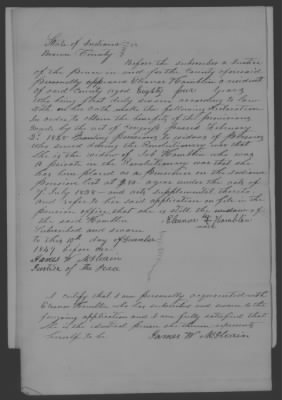 State of Indiana
Brown County
Before the subscriber a Justice
of the Peace in and for the County aforesaid
Personally appeared Eleanor Hamblin a resident
of said County aged Eighty four years
who being first duly sworn according to law
doth on her oath make the following declaration
in order to obtain the benefits of the provisions
made by the act of Congress passed February
2d 1848 Granting pensions to widows of persons
who served during the Revolutionary war that
she is the widow of Job Hamblin who was
a private in the Revolutionary war that she
has been placed as a Pensioner on the Indiana
Pension List at a year under the act of
7th July 1838 and acts supplemental thereto
and refer to her said application on file in the
pension office that she is still the widow of
the said Hamblin
Eleanor Hamblin
mark
Subscribed and sworn
to this day of
1849 before me
James W
Justice of the Peace
I certify that I am personally acquainted with
Eleanor Hamblin who has subscribed and sworn to the
foregoing application and I am fully satisfied that
she is the identical person she therein represents
herself to be
James W